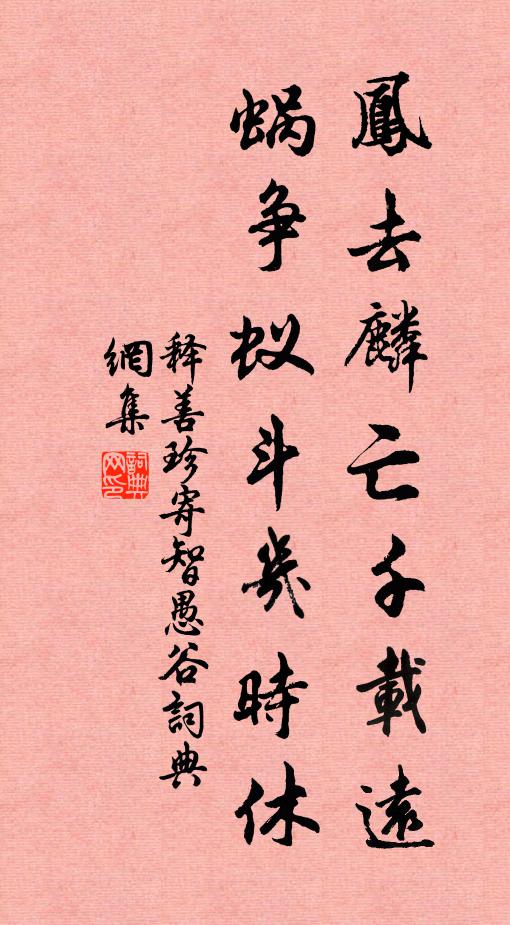 鳳去麟亡千載遠
蝸争蚁斗幾時休
释善珍寄智愚谷詞典
網集
詞典网印